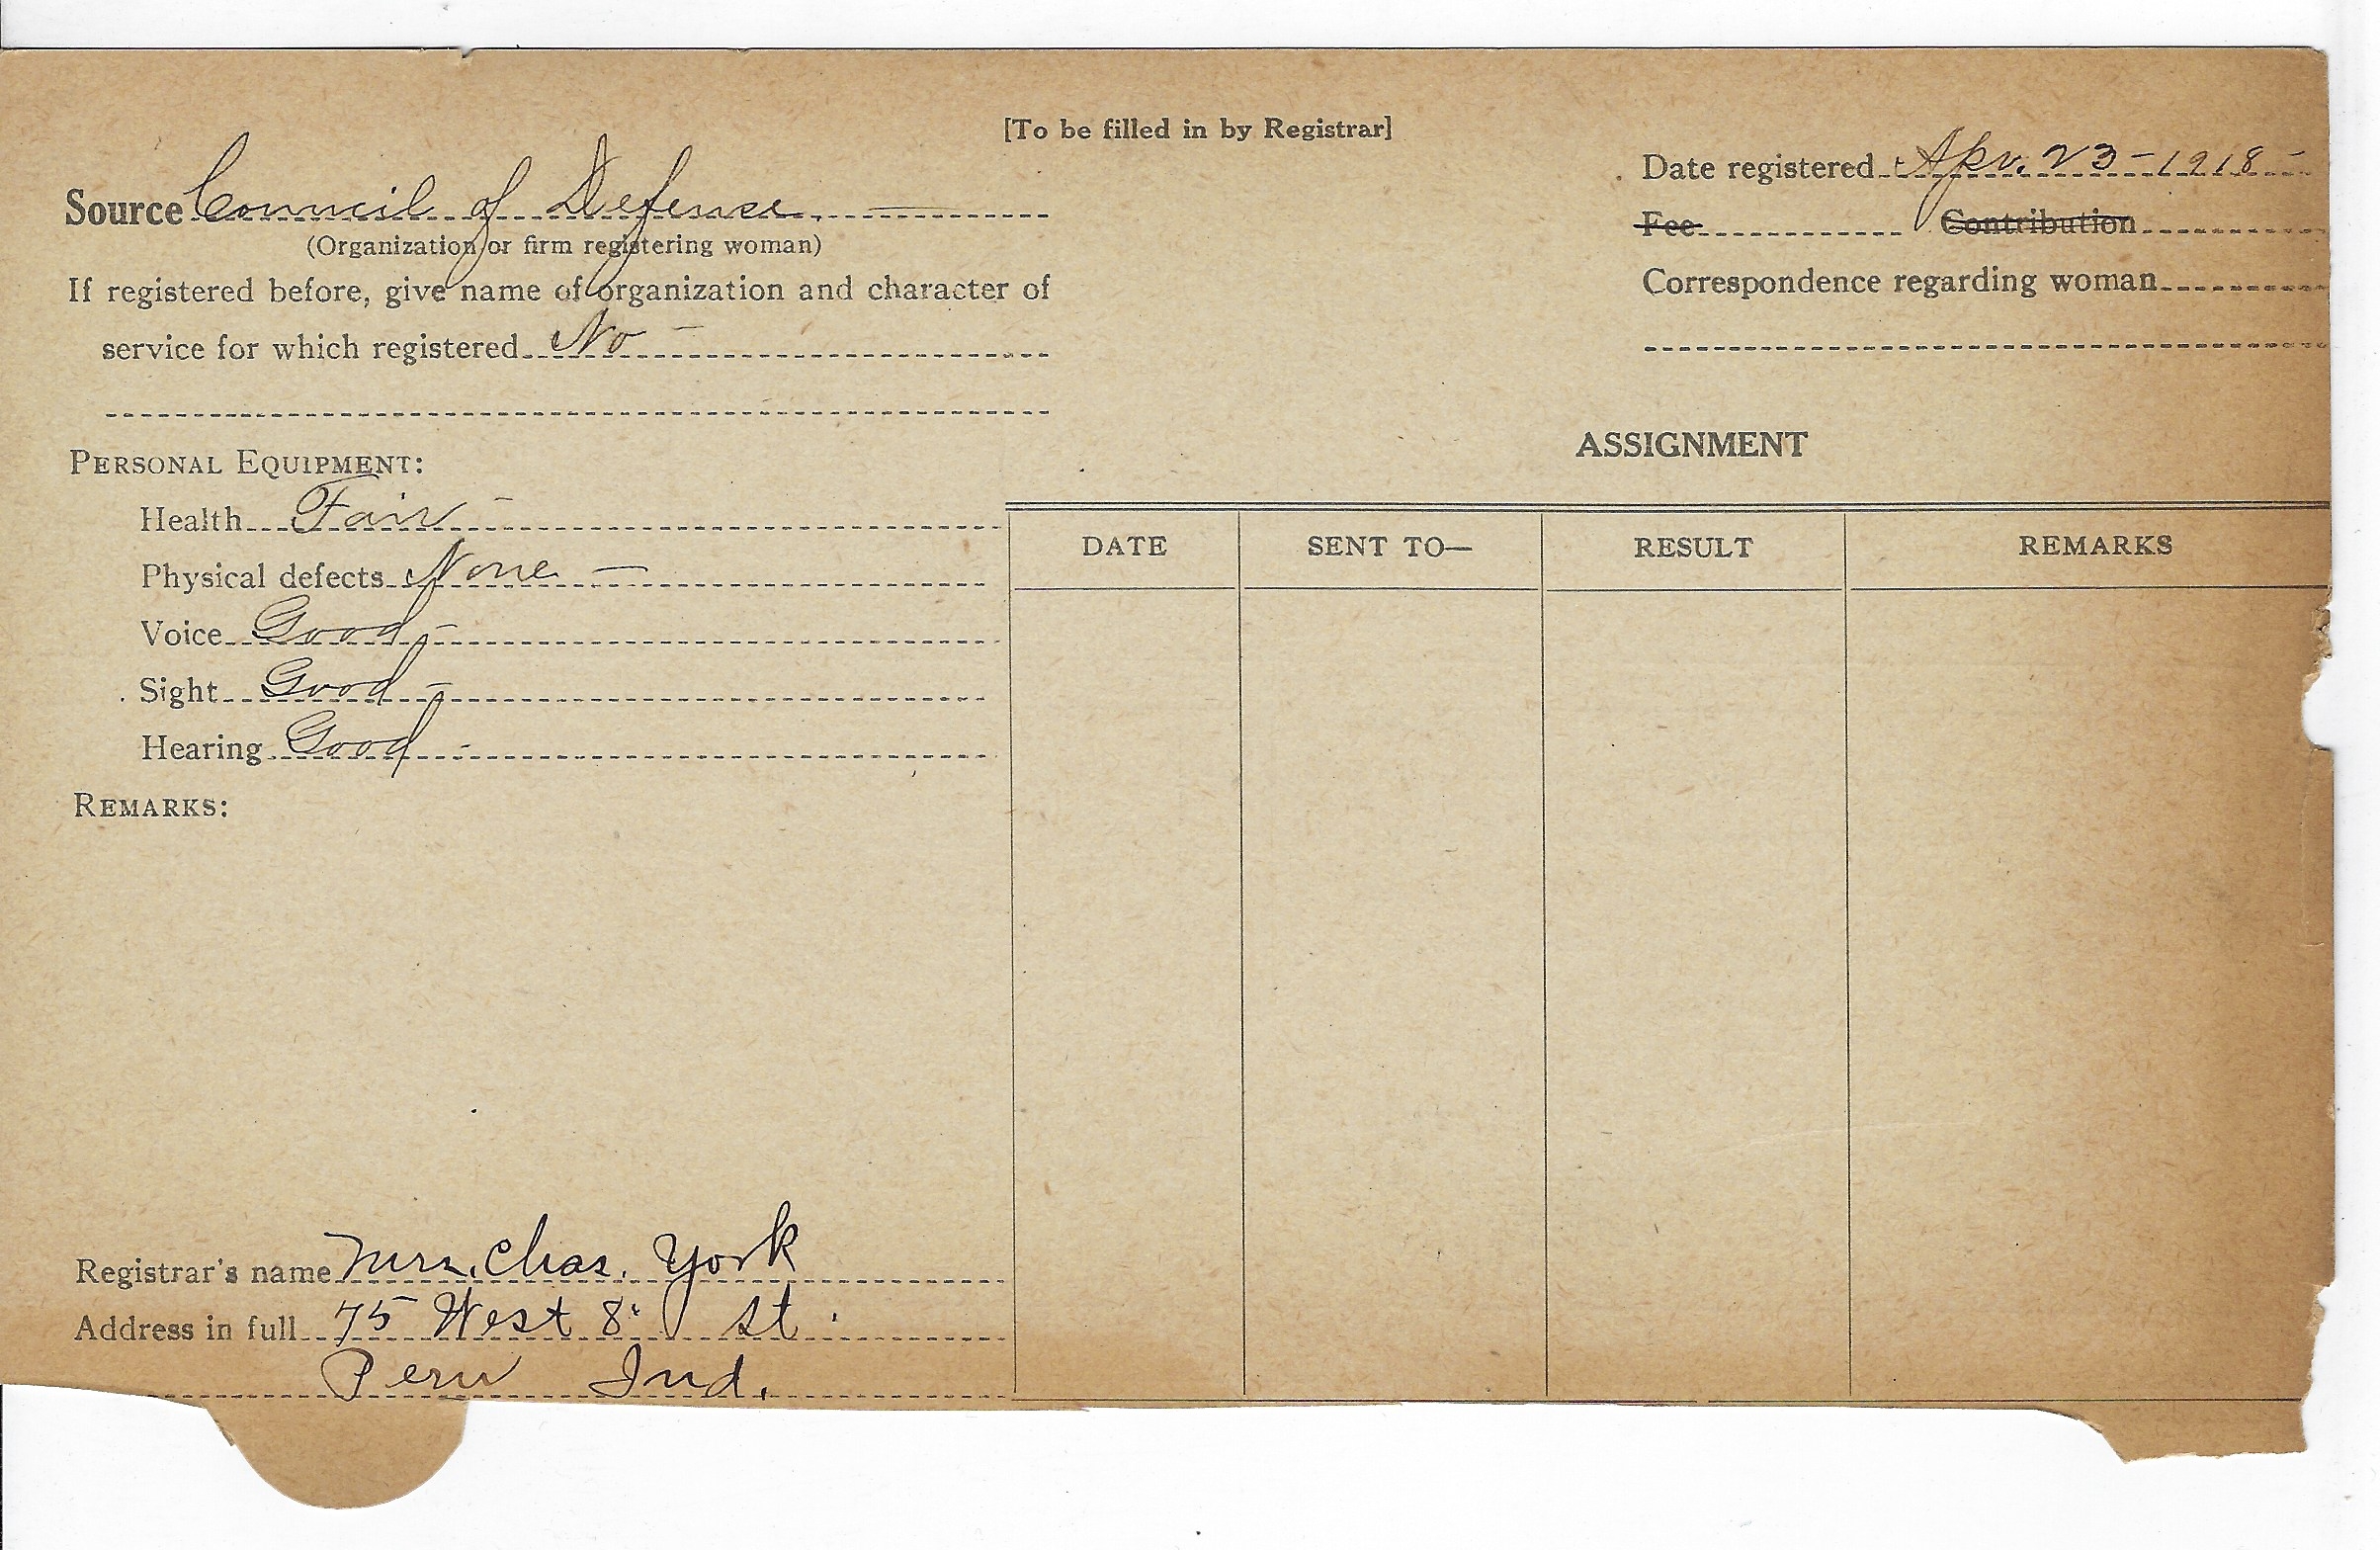 [To be filled in by Registrar]
Source Council of Defense.
(Organization or firm registering woman)
If registered before, give name of organization and character of
service for which registered No –
Date registered Apr. 23 – 1918 –
Fee Contribution
Correspondence regarding woman
PERSONAL EQUIPMENT:
Health Fair –
Physical defects None –
Voice Good –
Sight Good –
Hearing Good –
REMARKS:
ASSIGNMENT
DATE SENT TO— RESULT REMARKS
Registrar's name Mrs. Chas. York
Address in full 75 West 8 St.
Peru Ind.